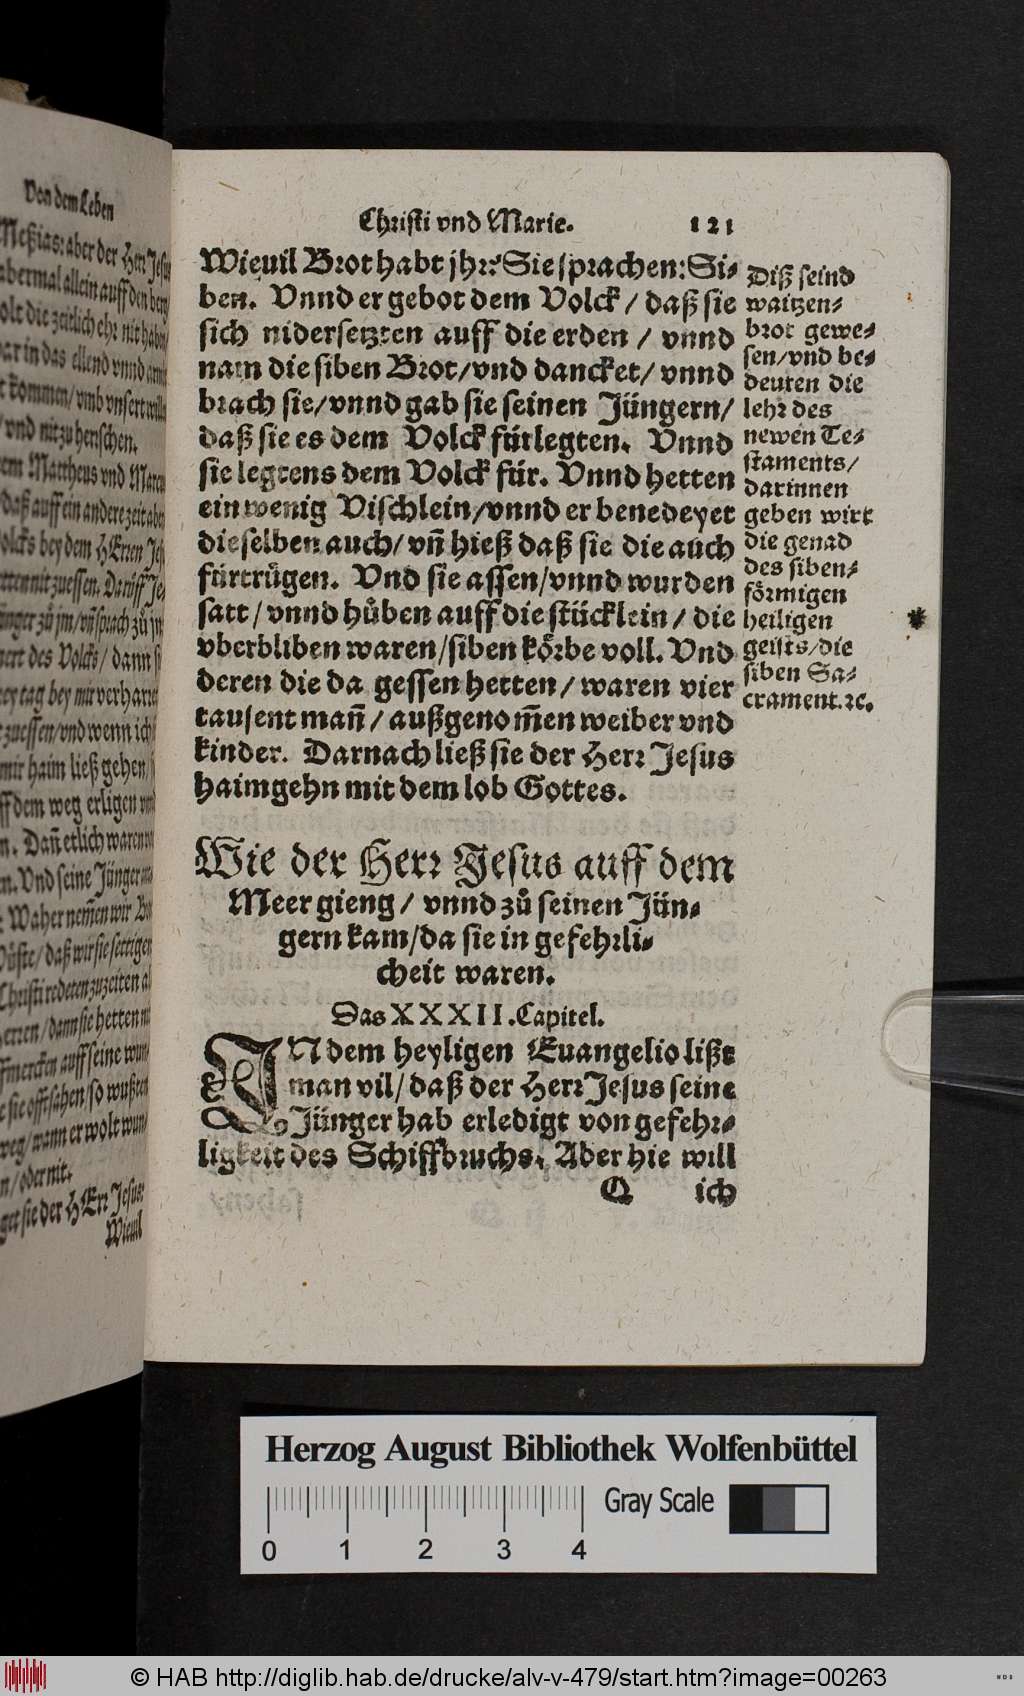 Von dem Leben
Meßias: aber der Herr Jesus
abermal allein auff den berg
olt die zeitlich ehr nit haben
ar in das ellend vnnd armut
kommen/ vmb vnsert willen
/vnd nit zu herschen.
em Mattheus vnd Marcus
daß auff ein andere zeit aber
olcks bey dem HErren Jesu
etten nit zuessen. Darüff Je-
ünger zů jm/ vñ sprach zů jn
mert des Volcks/ dann si
rey tag bey mir verharret
zuessen/ vnd wenn ich
mir haim ließ gehen/
ff dem weg erligen vnd
n. Dañ etlich waren von
en. Vnd seine Jünger
Waher nemen wir Brot
Wůste/ daß wir sie settigen
Christi redeten zuzeiten als
Herren/ dann sie hetten nit
ffmercken auff seine wun-
e sie offt sahen/ so wußten
weg/ wann er wolt wun-
n/ oder nit.
get sie der HErr Jesus:
Wieuil
Christi vnd Marie. 121
Wieuil Brot habt jhr? Sie sprachen: Si-
ben. Vnnd er gebot dem Volck / daß sie
sich nidersetzten auff die erden / vnnd
nam die siben Brot/ vnd dancket/ vnnd
brach sie/ vnnd gab sie seinen Jüngern/
daß sie es dem Volck fürlegten. Vnnd
sie legtens dem Volck für. Vnnd hetten
ein wenig Vischlein/ vnnd er benedeyet
dieselben auch/ vñ hieß daß sie die auch
fürtrůgen. Vnd sie assen/ vnnd wurden
satt / vnnd hůben auff die stücklein / die
vberbliben waren/ siben kőrbe voll. Vnd
deren die da gessen hetten / waren vier
tausent mañ / außgenom̄en weiber vnd
kinder. Darnach ließ sie der Herr Jesus
haimgehn mit dem lob Gottes.
Diß seind
waitzen-
brot gewe-
sen/ vnd be-
deuten die
lehr des
newen Te-
staments/
darinnen
geben wirt
die genad
des siben-
főrmigen
heiligen
geists/ die
siben Sa-
crament. ꝛc.
*
Wie der Herr Jesus auff dem
Meer gieng / vnnd zů seinen Jün-
gern kam/ da sie in gefehrli-
cheit waren.
Das XXXII. Capitel.
IN dem heyligen Euangelio lißt
man vil/ daß der Herr Jesus seine
Jünger hab erledigt von gefehr-
ligkeit des Schiffbruchs. Aber hie will
Q ich
Herzog August Bibliothek Wolfenbüttel
Gray Scale
0 1 2 3 4
© HAB http://diglib.hab.de/drucke/alv-v-479/start.htm?image=00263